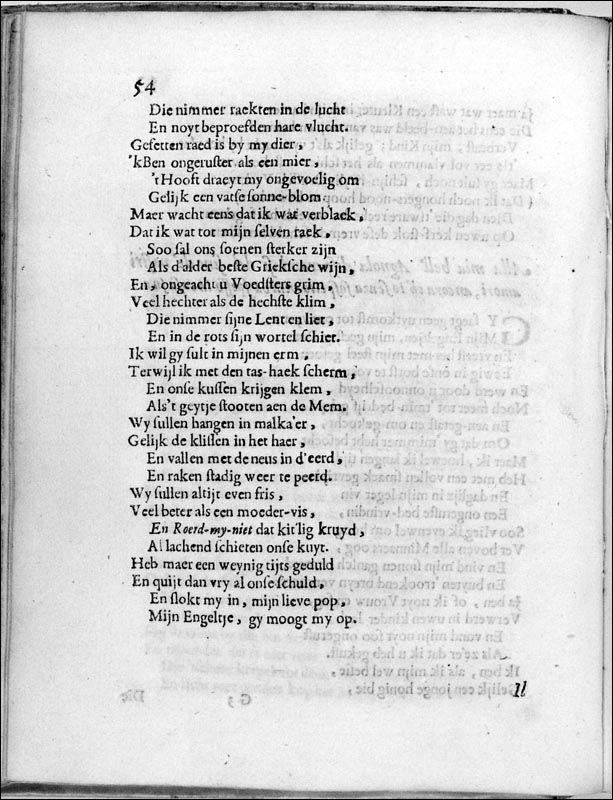 54
Die nimmer raekten in de lucht
En noyt beproefden hare vlucht.
Gesetten raed is by my dier,
'kBen ongeruster als een mier,
't Hooft draeyt my ongevoelig om
Gelijk een vatse sonne-blom.
Maer wacht eens dat ik wat verblaek,
Dat ik wat tot mijn selven raek,
Soo sal ons soenen sterker zijn
Als d'alder beste Grieksche wijn,
En, ongeacht u Voedsters grim,
Veel hechter als de hechste klim,
Die nimmer sijne Lent en liet,
En in de rots sijn wortel schiet.
Ik wil gy sult in mijnen erm,
Terwijl ik met den tas-haek scherm,
En onse kussen krijgen klem,
Als't geytje stooten aen de Mem.
Wy sullen hangen in malka'er,
Gelijk de klissen in het haer,
En vallen met de neus in d'eerd,
En raken stadig weer te peerd.
Wy sullen altijt even fris,
Veel beter als een moeder-vis,
En Roerd-my-niet dat kit'lig kruyd,
Al lachend schieten onse kuyt.
Heb maer een weynig tijts geduld
En quijt dan vry al onse schuld,
En slokt my in, mijn lieve pop,
Mijn Engeltje, gy moogt my op.
Il